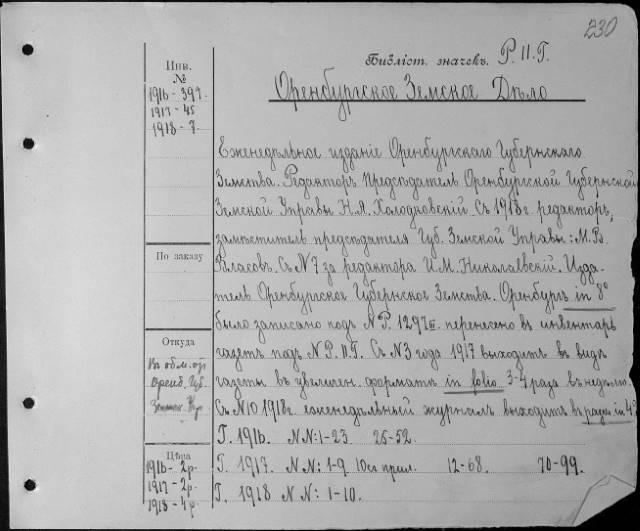 230
Библіот. значекъ. Р. II. Г.
Оренбургское Земское Дѣло
Инв.
№
1916 - 397.
1917 - 45
1918 - 7.
Еженедѣльное изданіе Оренбургскаго Губернскаго
Земства. Редакторъ Предсѣдатель Оренбургской Губернской
Земской Управы Н.Я. Холодковскій. Съ 1918г. редакторъ,
замѣститель предсѣдателя Губ. Земской Управы: М. В.
Власов. Съ N 7 за редактора И. М. Николаевскій. Изда-
тель Оренбургское Губернское Земства. Оренбургъ in 8°
было записано подъ N Р. 1297 перенесено въ инвентарь
газетъ подъ N Р. II. Г. Съ N 3 года 1917 выходитъ въ видѣ
газеты въ увеличен. форматѣ in folio 3-4 раза въ недѣлю
Съ N 10 1918г. еженедѣльный журналъ выходитъ въ in 4°
По заказу
Откуда
Въ обм. от
Оренб. Губ.
Земск. Упр.
Цѣна
1916 - 2 р.
1917 - 2 р.
1918 - 4 р.
Г. 1916. N N: 1-23 25-52.
Г. 1917. N N: 1-9. 10со прил. 12-68. 70-99.
Г. 1918 N N: 1-10.